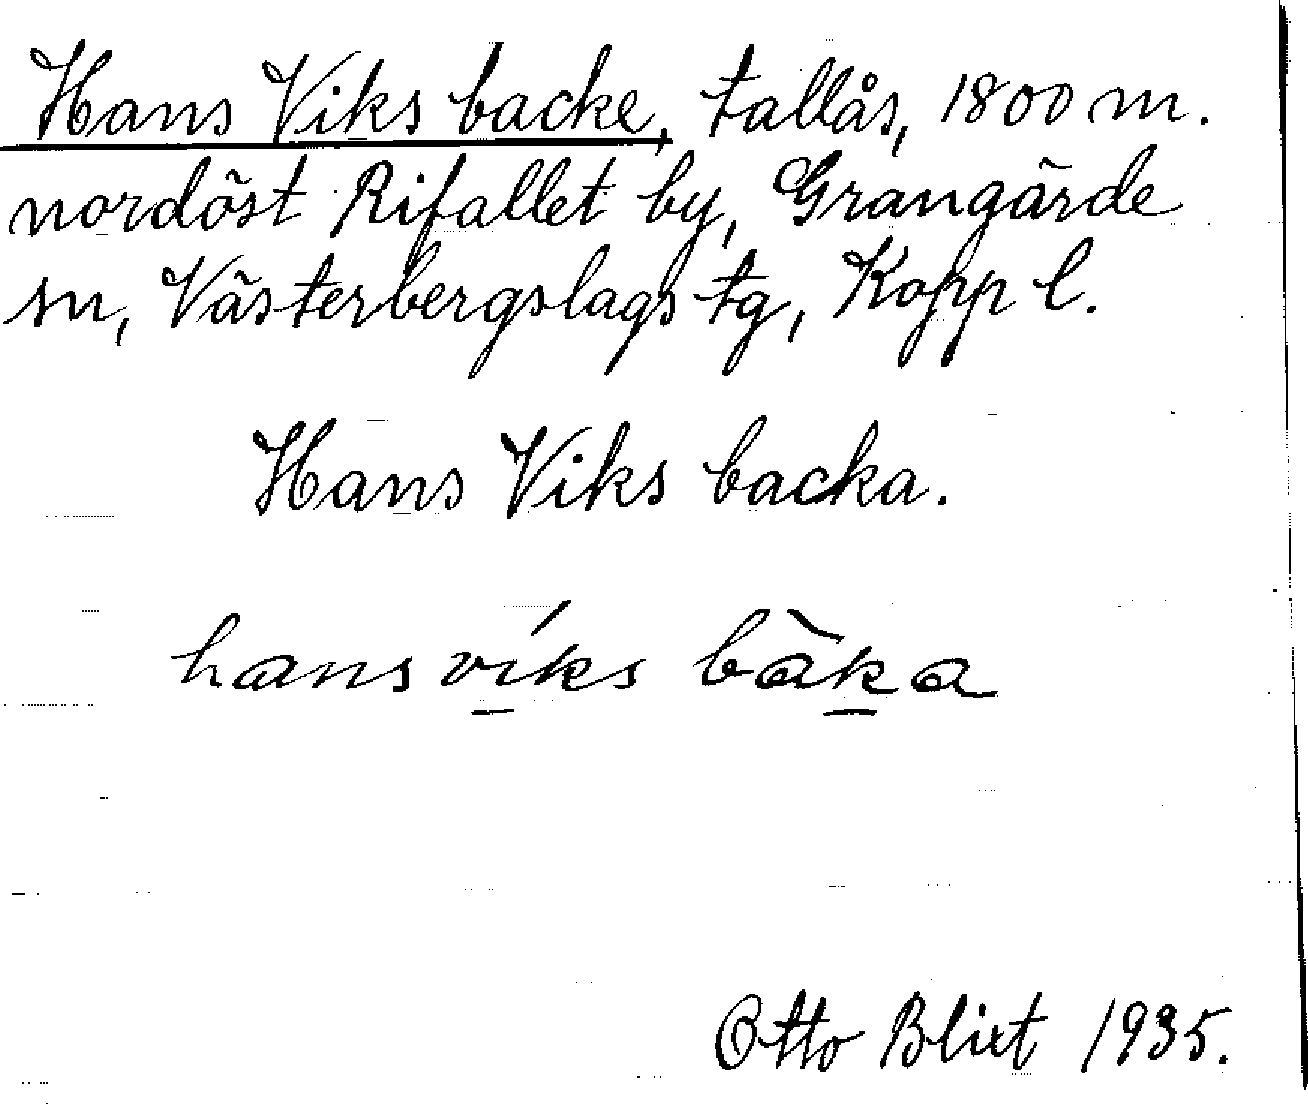 Hans Viks backe, tallås, 1800 m.
nordöst Rifallet by, Grangärde
sn, Västerbergslags tg, Kopp l.
Hans Viks backa.
hans víks bàka
Otto Blixt 1935.